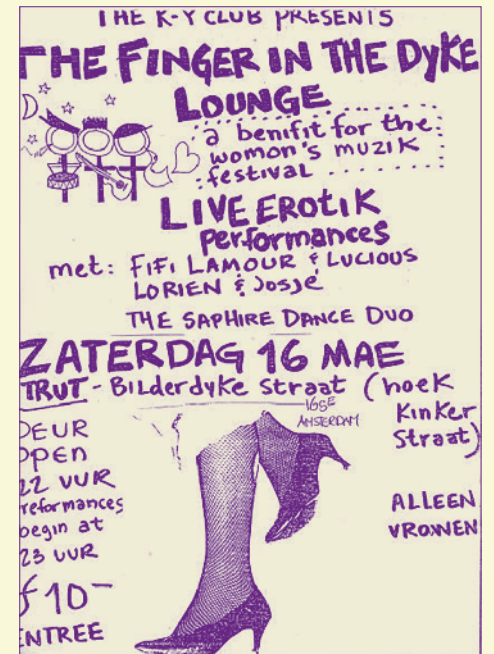 THE K-Y CLUB PRESENTS
THE FINGER IN THE DYKE
LOUNGE
a benifit for the
womon's muzik
festival
LIVE EROTIK
performances
met: FIFI LAMOUR & LUCIOUS
LORIEN & Josje
THE SAPHIRE DANCE DUO
ZATERDAG 16 MAE
TRUT - BILDERDYKE Straat (hoek
KINKER
Straat)
165E
AMSTERDAM
DEUR
OPPEN
22 VUR
reformances
begin at
23 UUR
f 10-
ENTREE
ALLEEN
VROWEN